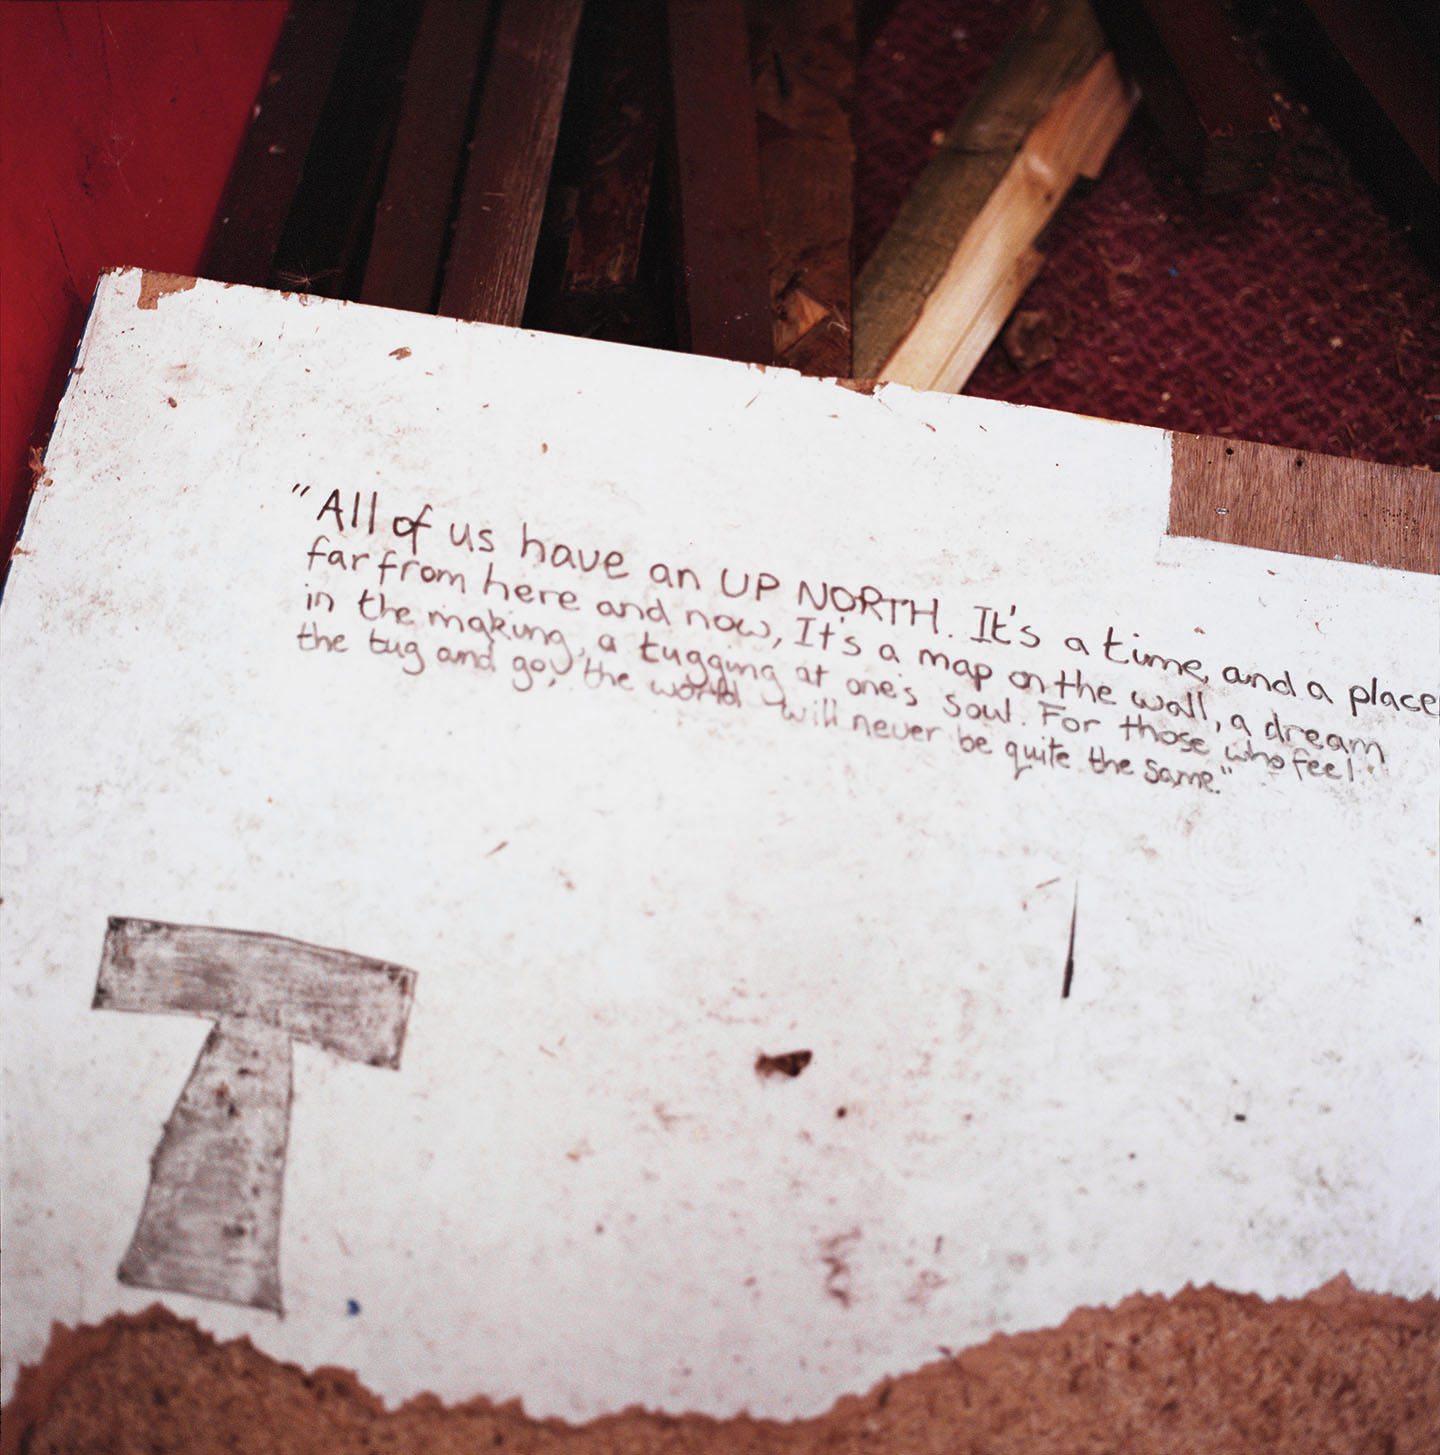 "All of us have an UP NORTH. It's a time, and a place,
far from here and now, It's a map on the wall, a dream
in the making, a tugging at one's soul. For those who feel
the tug and go, the world will never be quite the same."
T